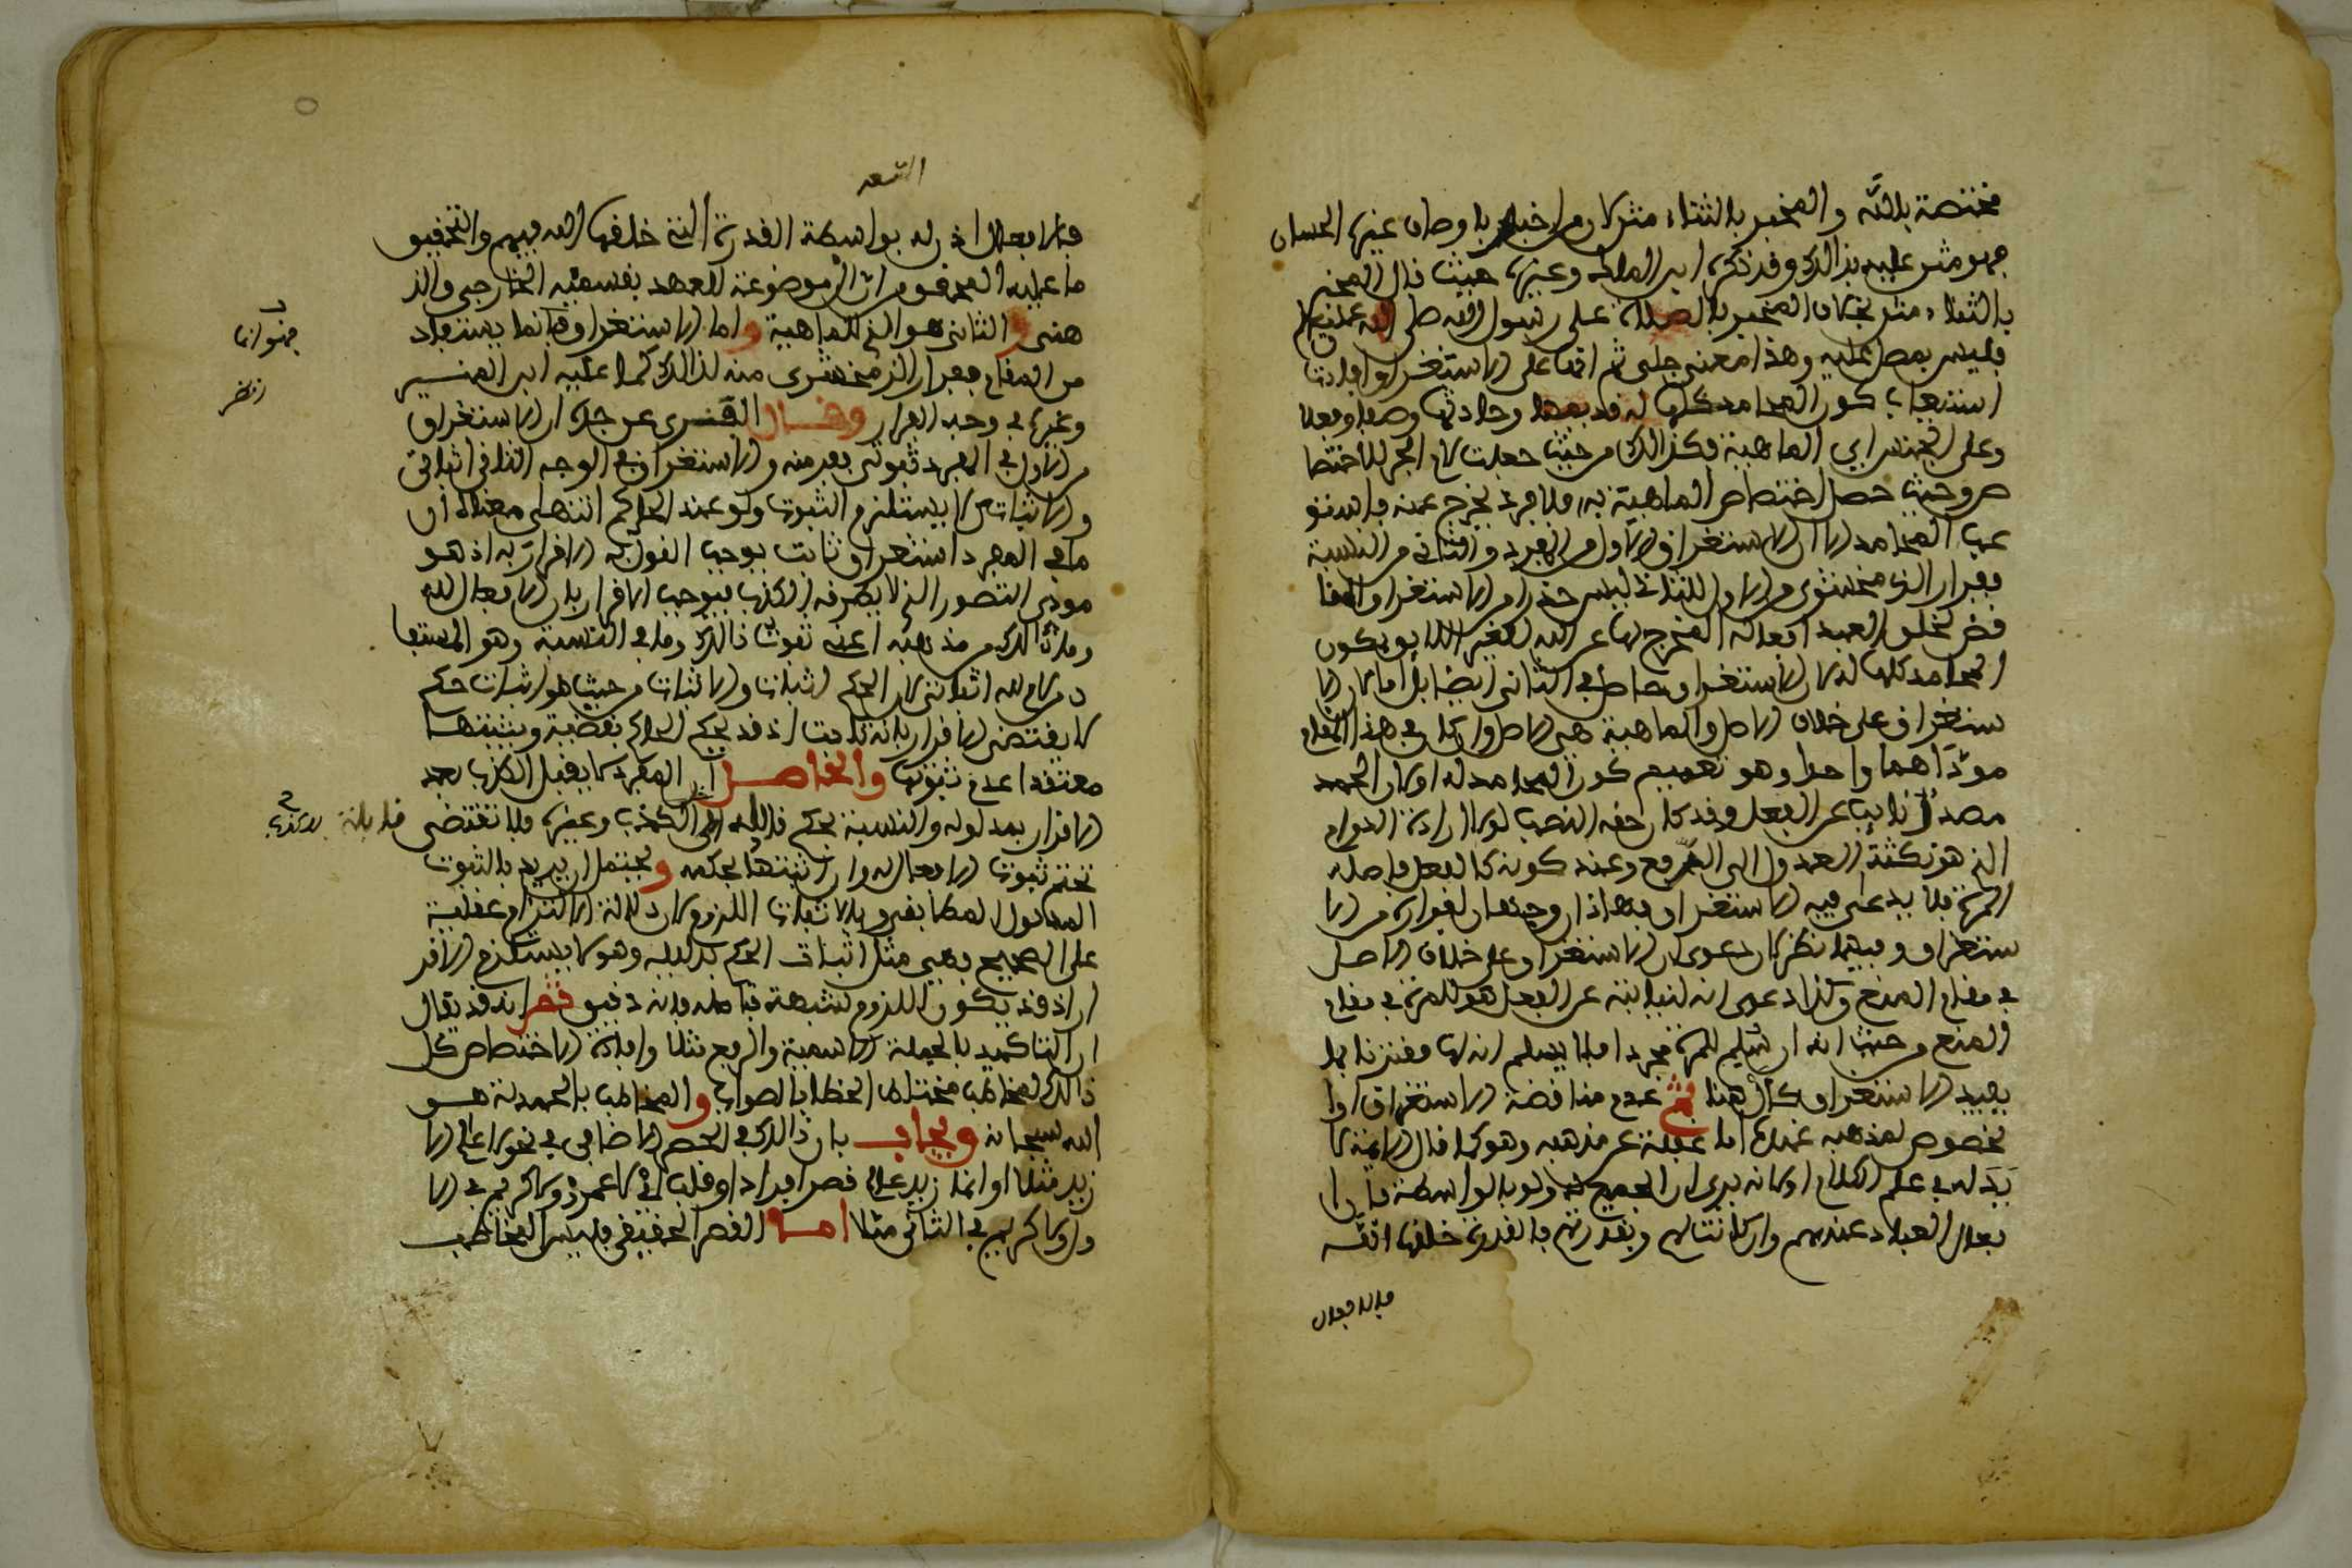 مختصة بالله والمخبر بالثناء مثن لان من اخباره باوصاف غيره الحسان
فهو مثن عليه بذالك وقد ذكره ابن الملك وغيره حيث قال المخبر
بالثناء مثن بخلاف المخبر بالصلاة على رسول الله صلى الله عليه
فليس بمصل عليه وهذا معنى جلي ثم انها على الاستغراق افادت
استيعاب كون المحامد كلها له وحادثها وصفا وفعلا
وعلى الجنس اي الماهية فكذالك من حيث جعلت لام الجر للاختصا
ص وحيث حصل اختصاص الماهية به فلا فرد يخرج عنه فاستو
عب المحامد الا ان الاستغراق الاول من المفرد والثاني من النسبة
ففرار الزمخشري من الاول للثاني ليس حذرا من الاستغراق
فض لخلق العبد افعاله المخرج لها عن الله لغيره
المحامد كلها له لان الاستغراق حاصل في الثاني ايضا بل اما لان الا
ستغراق على خلاف الاصل والماهية هي الاصل وان كان في هذا المقام
مؤداهما واحدا وهو تعميم كون المحامد له او لان الحمد
مصدر نايب عن الفعل وقد كان حقه النصب لولا ارادة الدوام
الذي هو نكتة العدول الى الرفع وعند كونه كالفعل فاصله
المرة فلا يدعى فيه الاستغراق فهاذان وجهان لفراره من الا
ستغراق وفيهما نظر لان دعوى ان الاستغراق على خلاف الاصل
في مقام المنع وكذا دعوى انه لنيابته عن الفعل هو للمرة في مقام
المنع من حيث انه ان سلم للمرة مجردا فلا يسلم انه لها مقترنا بما
يفيد الاستغراق كال هنا ثم عدم مناقضة الاستغراق
بخصوص لمذهبه عنده اما غفلة عن مذهبه وهو كما قال الايمة لا
يد له في علم الكلام او لانه يرى ان الجميع لله ولو بالواسطة فان ا
فعال العباد عندهم وان كانت لهم وبقدرتهم فالقدرة خلقها الله
فالافعال
فالافعال اذن له بواسطة القدرة التي خلقها الله فيهم والتحقيق
ما عليه المحققون من ان ال موضوعة للعهد بقسميه الخارجي والذ
هني والثاني هو الذي للماهية واما الاستغراق فانما يستفاد
من المقام ففرار الزمخشري منه لذالك كما عليه ابن المنير
وغيره في وجه الفرار وقال عن جده ان الاستغراق
من الاول في المفرد ثبوتي ففر منه والاستغراق في الوجه الثاني اثباتي
والاثبات لا يستلزم الثبوت ولو عند الحاكم انتهى معناه ان
ما في المفرد استغراق ثابت يوجب القول به الاقرار به اذ هو
مودى التصور الذي لا يطرقه الكذب فيوجب الاقرار بان الافعال لله
وما ذالك من مذهبه اعني ثبوت ذالك وما في النسبة وهو المستفا
د من لام لله اثباتي لان الحكم اثبات والاثبات من حيث هو اثبات حكم
لا يقتضي الاقرار بانه ثابت اذ قد يحكم الحاكم بقضية ويثبتها
معتقدا عدم ثبوتها والحاصل ان المفرد لا يقبل الكذب بعد
الاقرار بمدلوله والنسبة بحكم قابلة الى الكذب وغيره فلا تقتضي
تحتم ثبوت الافعال له وان اثبتها بحكمه ويحتمل ان يريد بالثبوت
المدلول المطابقي وبالاثبات اللزوم لان دلالة الالتزام عقلية
على الصحيح فهي مثل اثبات الحكم بدليله وهو لا يستلزم الاقر
ار اذ قد يكون اللزوم لشبهة فتامله فانه دقيق ثم انه قد يقال
ان التاكيد بالجملة الاسمية والرفع مثلا وافادة الاختصاص كل
ذالك لمخاطب مختلط الخطا بالصواب والمخاطب بالحمدلة هو
الله سبحانه ويجاب بان ذالك في الحصر الاضافي في نحو لا عالم الا
زيد مثلا او انما زيد عالم قصر افراد او قلب اي لا عمرو ولا كريم في الا
ول ولا كريم في الثاني مثلا اما القصر الحقيقي فليس المخاطب
انظر